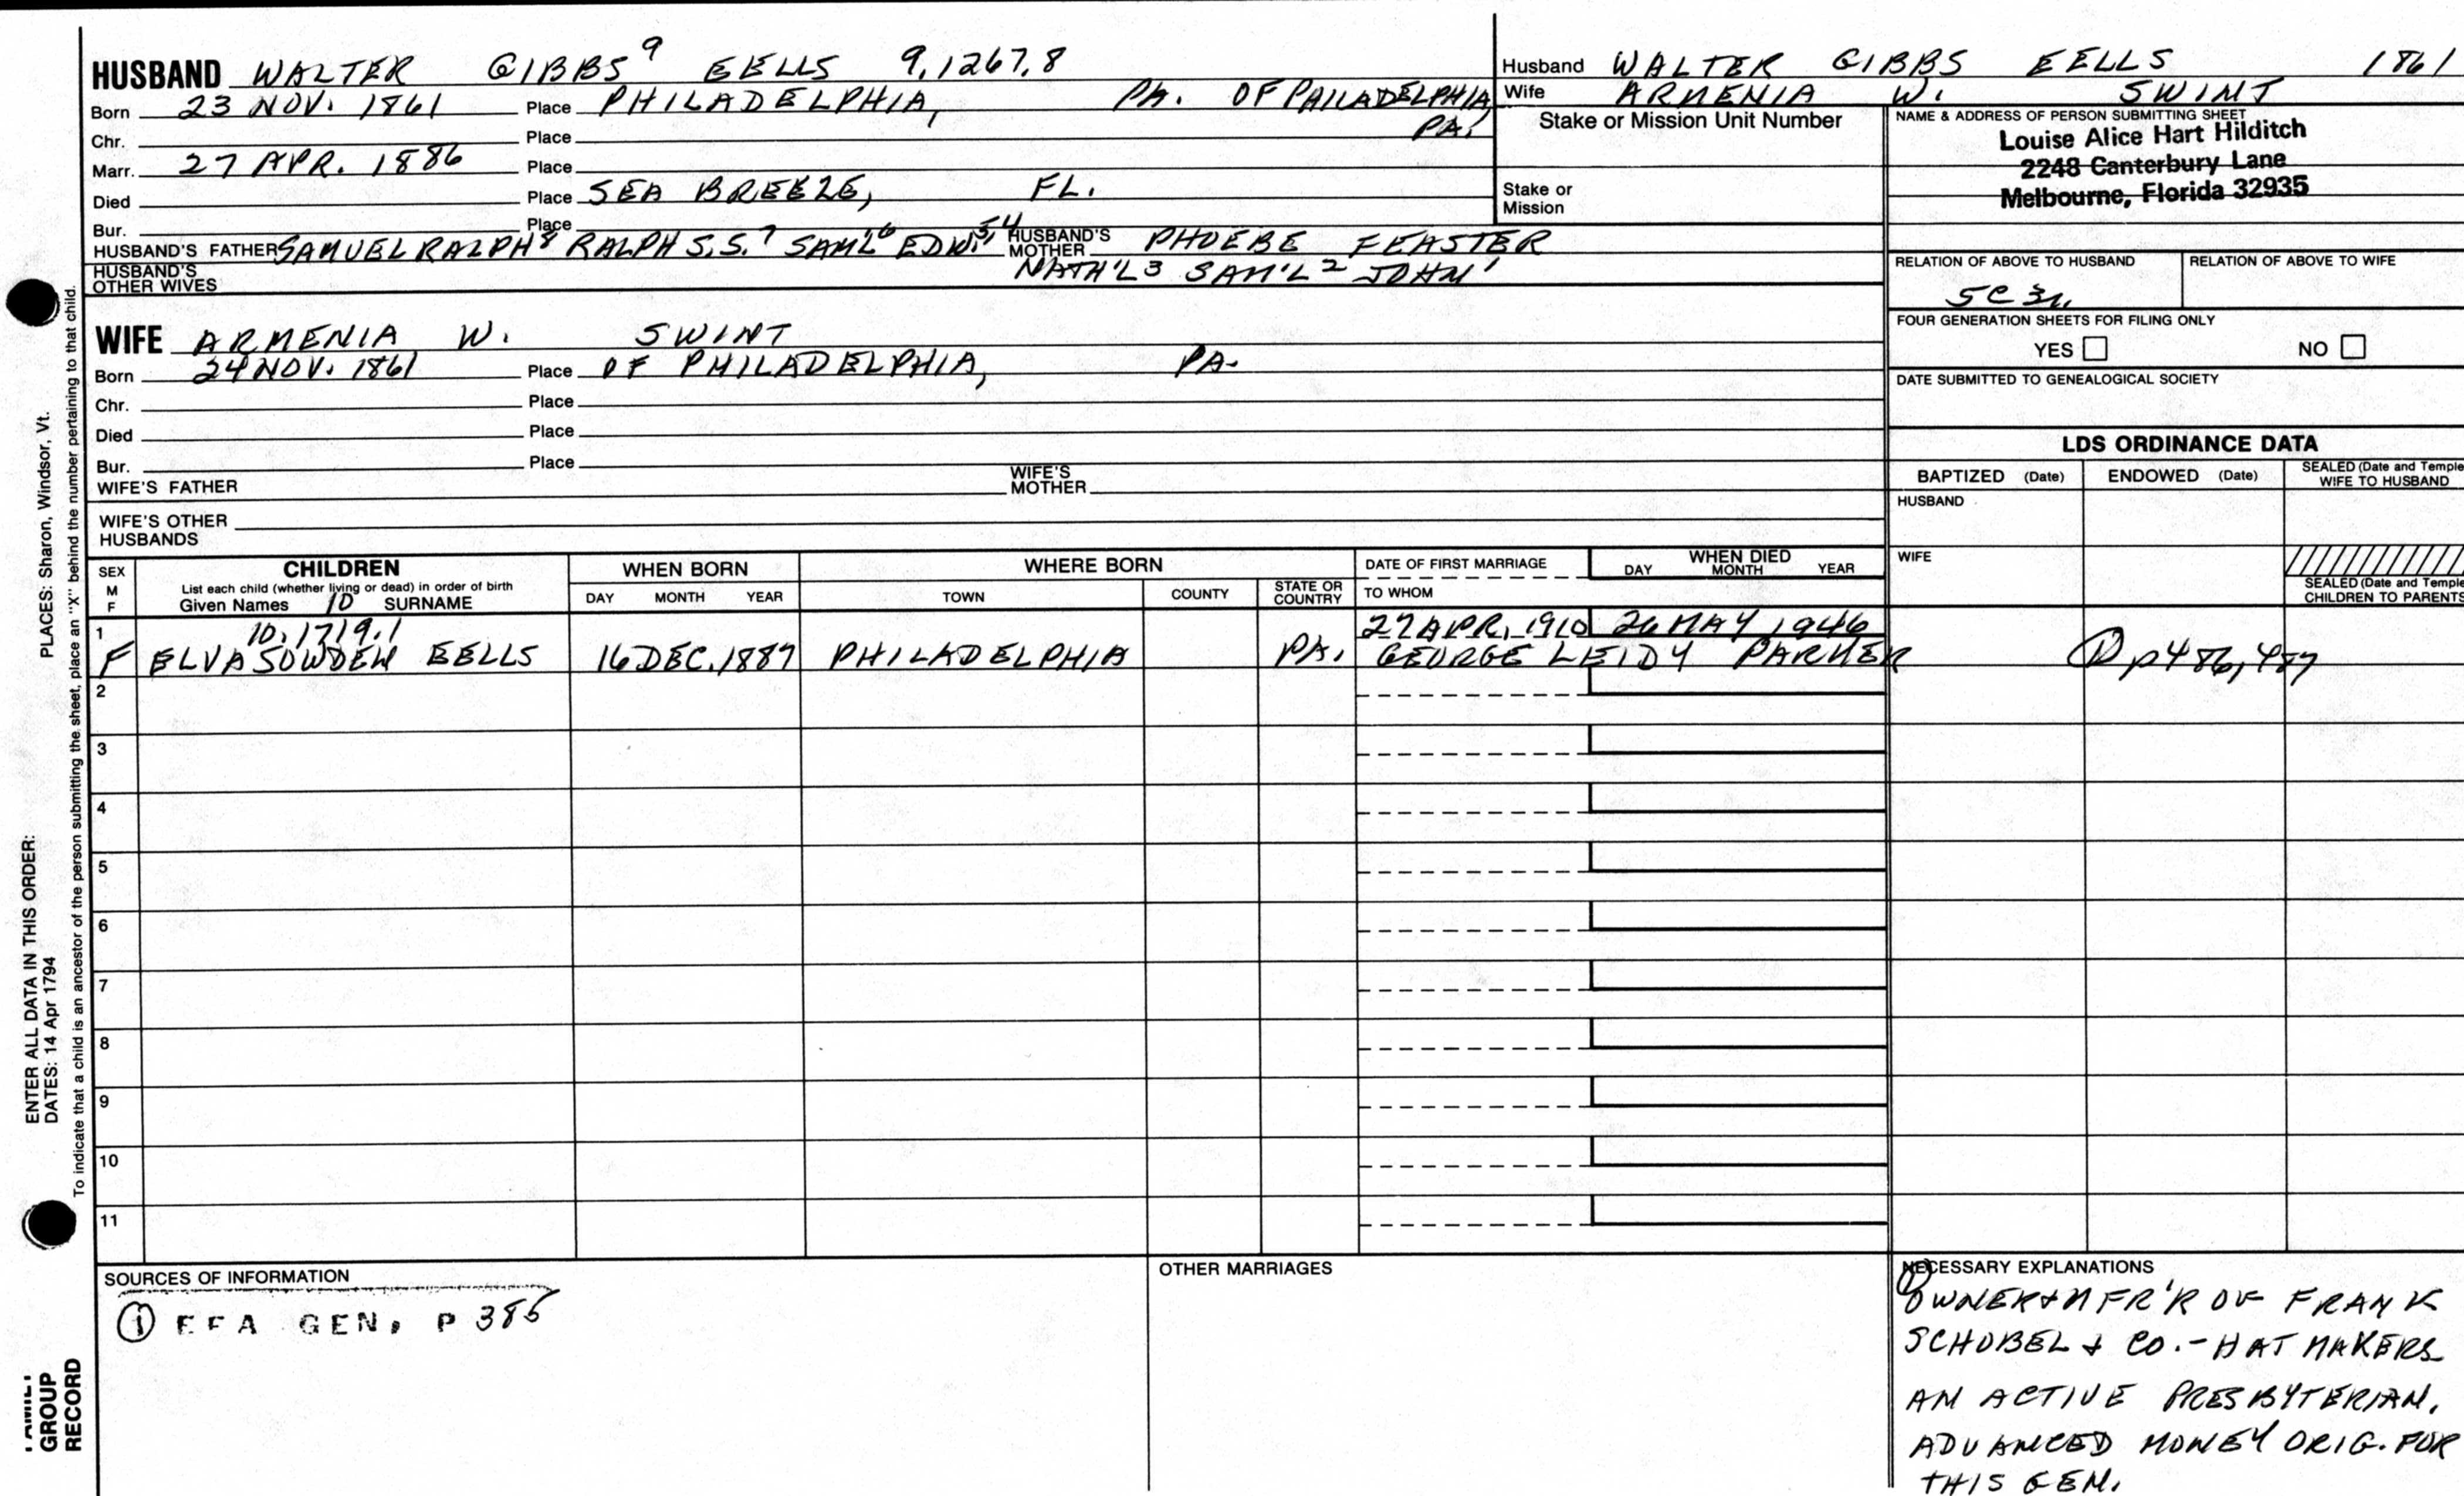 HUSBAND WALTER GIBBS⁹ EELLS 9,1267,8
Born 23 NOV. 1861 Place PHILADELPHIA, PA. OF PHILADELPHIA,
PA.
Chr. Place
Marr. 27 APR. 1886 Place
Died Place SEA BREEZE, FL.
Bur. Place
HUSBAND'S FATHER SAMUEL RALPH⁸ RALPH S.S.⁷ SAM'L⁶ EDW.⁵,⁴ HUSBAND'S MOTHER PHOEBE FEASTER
HUSBAND'S OTHER WIVES NATH'L³ SAM'L² JOHN¹
Husband WALTER GIBBS EELLS 1861
Wife ARMENIA W. SWINT
Stake or Mission Unit Number
Stake or Mission
NAME & ADDRESS OF PERSON SUBMITTING SHEET
Louise Alice Hart Hilditch
2248 Canterbury Lane
Melbourne, Florida 32935
RELATION OF ABOVE TO HUSBAND RELATION OF ABOVE TO WIFE
5C 3r.
FOUR GENERATION SHEETS FOR FILING ONLY
YES NO
DATE SUBMITTED TO GENEALOGICAL SOCIETY
WIFE ARMENIA W. SWINT
Born 24 NOV. 1861 Place OF PHILADELPHIA, PA.
Chr. Place
Died Place
Bur. Place
WIFE'S FATHER WIFE'S MOTHER
WIFE'S OTHER HUSBANDS
LDS ORDINANCE DATA
BAPTIZED (Date) ENDOWED (Date) SEALED (Date and Temple) WIFE TO HUSBAND
HUSBAND
WIFE
SEALED (Date and Temple) CHILDREN TO PARENTS
SEX M F
CHILDREN
List each child (whether living or dead) in order of birth
Given Names 10 SURNAME
WHEN BORN
DAY MONTH YEAR
WHERE BORN
TOWN COUNTY STATE OR COUNTRY
DATE OF FIRST MARRIAGE
TO WHOM
WHEN DIED
DAY MONTH YEAR
1 10,1719.1 27 APR. 1910 26 MAY 1946
F ELVA SOWDEN EELLS 16 DEC. 1887 PHILADELPHIA PA. GEORGE LEIDY PARKER ① p 486, 487
2
3
4
5
6
7
8
9
10
11
SOURCES OF INFORMATION
① EFA GEN, P 385
OTHER MARRIAGES
NECESSARY EXPLANATIONS
①
OWNER & MFR'R OF FRANK
SCHOBEL & CO. - HAT MAKERS
AN ACTIVE PRESBYTERIAN,
ADVANCED MONEY ORIG. FOR
THIS GEN.
ENTER ALL DATA IN THIS ORDER:
DATES: 14 Apr 1794
PLACES: Sharon, Windsor, Vt.
To indicate that a child is an ancestor of the person submitting the sheet, place an "X" behind the number pertaining to that child.
FAMILY
GROUP
RECORD